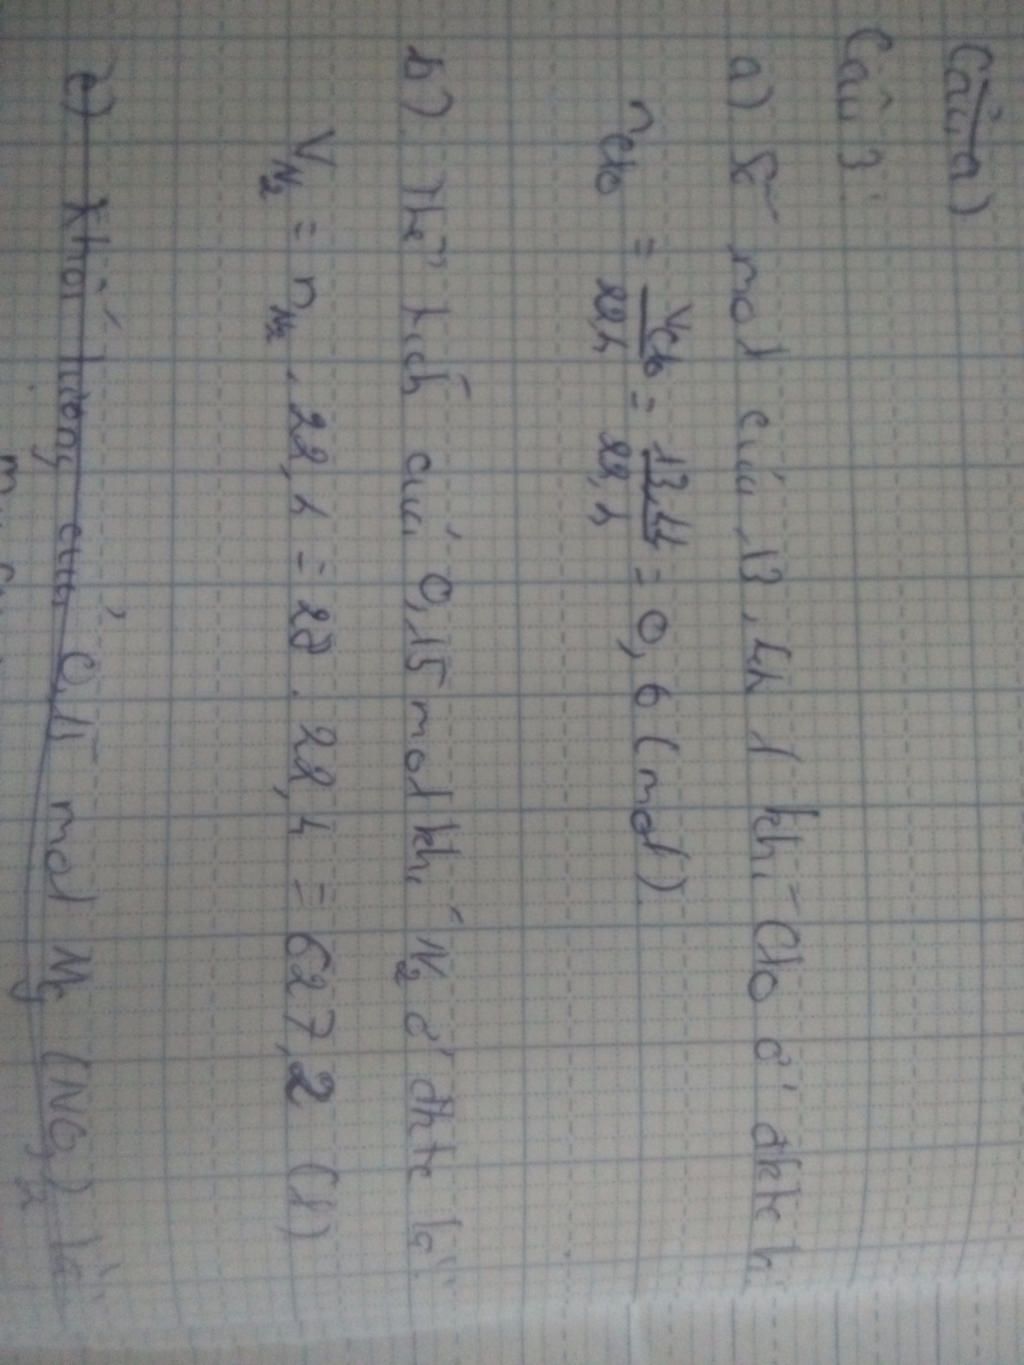 Câu a)
Câu 3
a) Số mol của 13,44 l khí Clo ở đktc là
nClo = VClo/22,4 = 13,44/22,4 = 0,6 (mol)
b) Thể tích của 0,15 mol khí N2 ở đktc là:
VN2 = nN2 . 22,4 = 28 . 22,4 = 627,2 (l)
c) Khối lượng của 0,15 mol (NO3)2 là